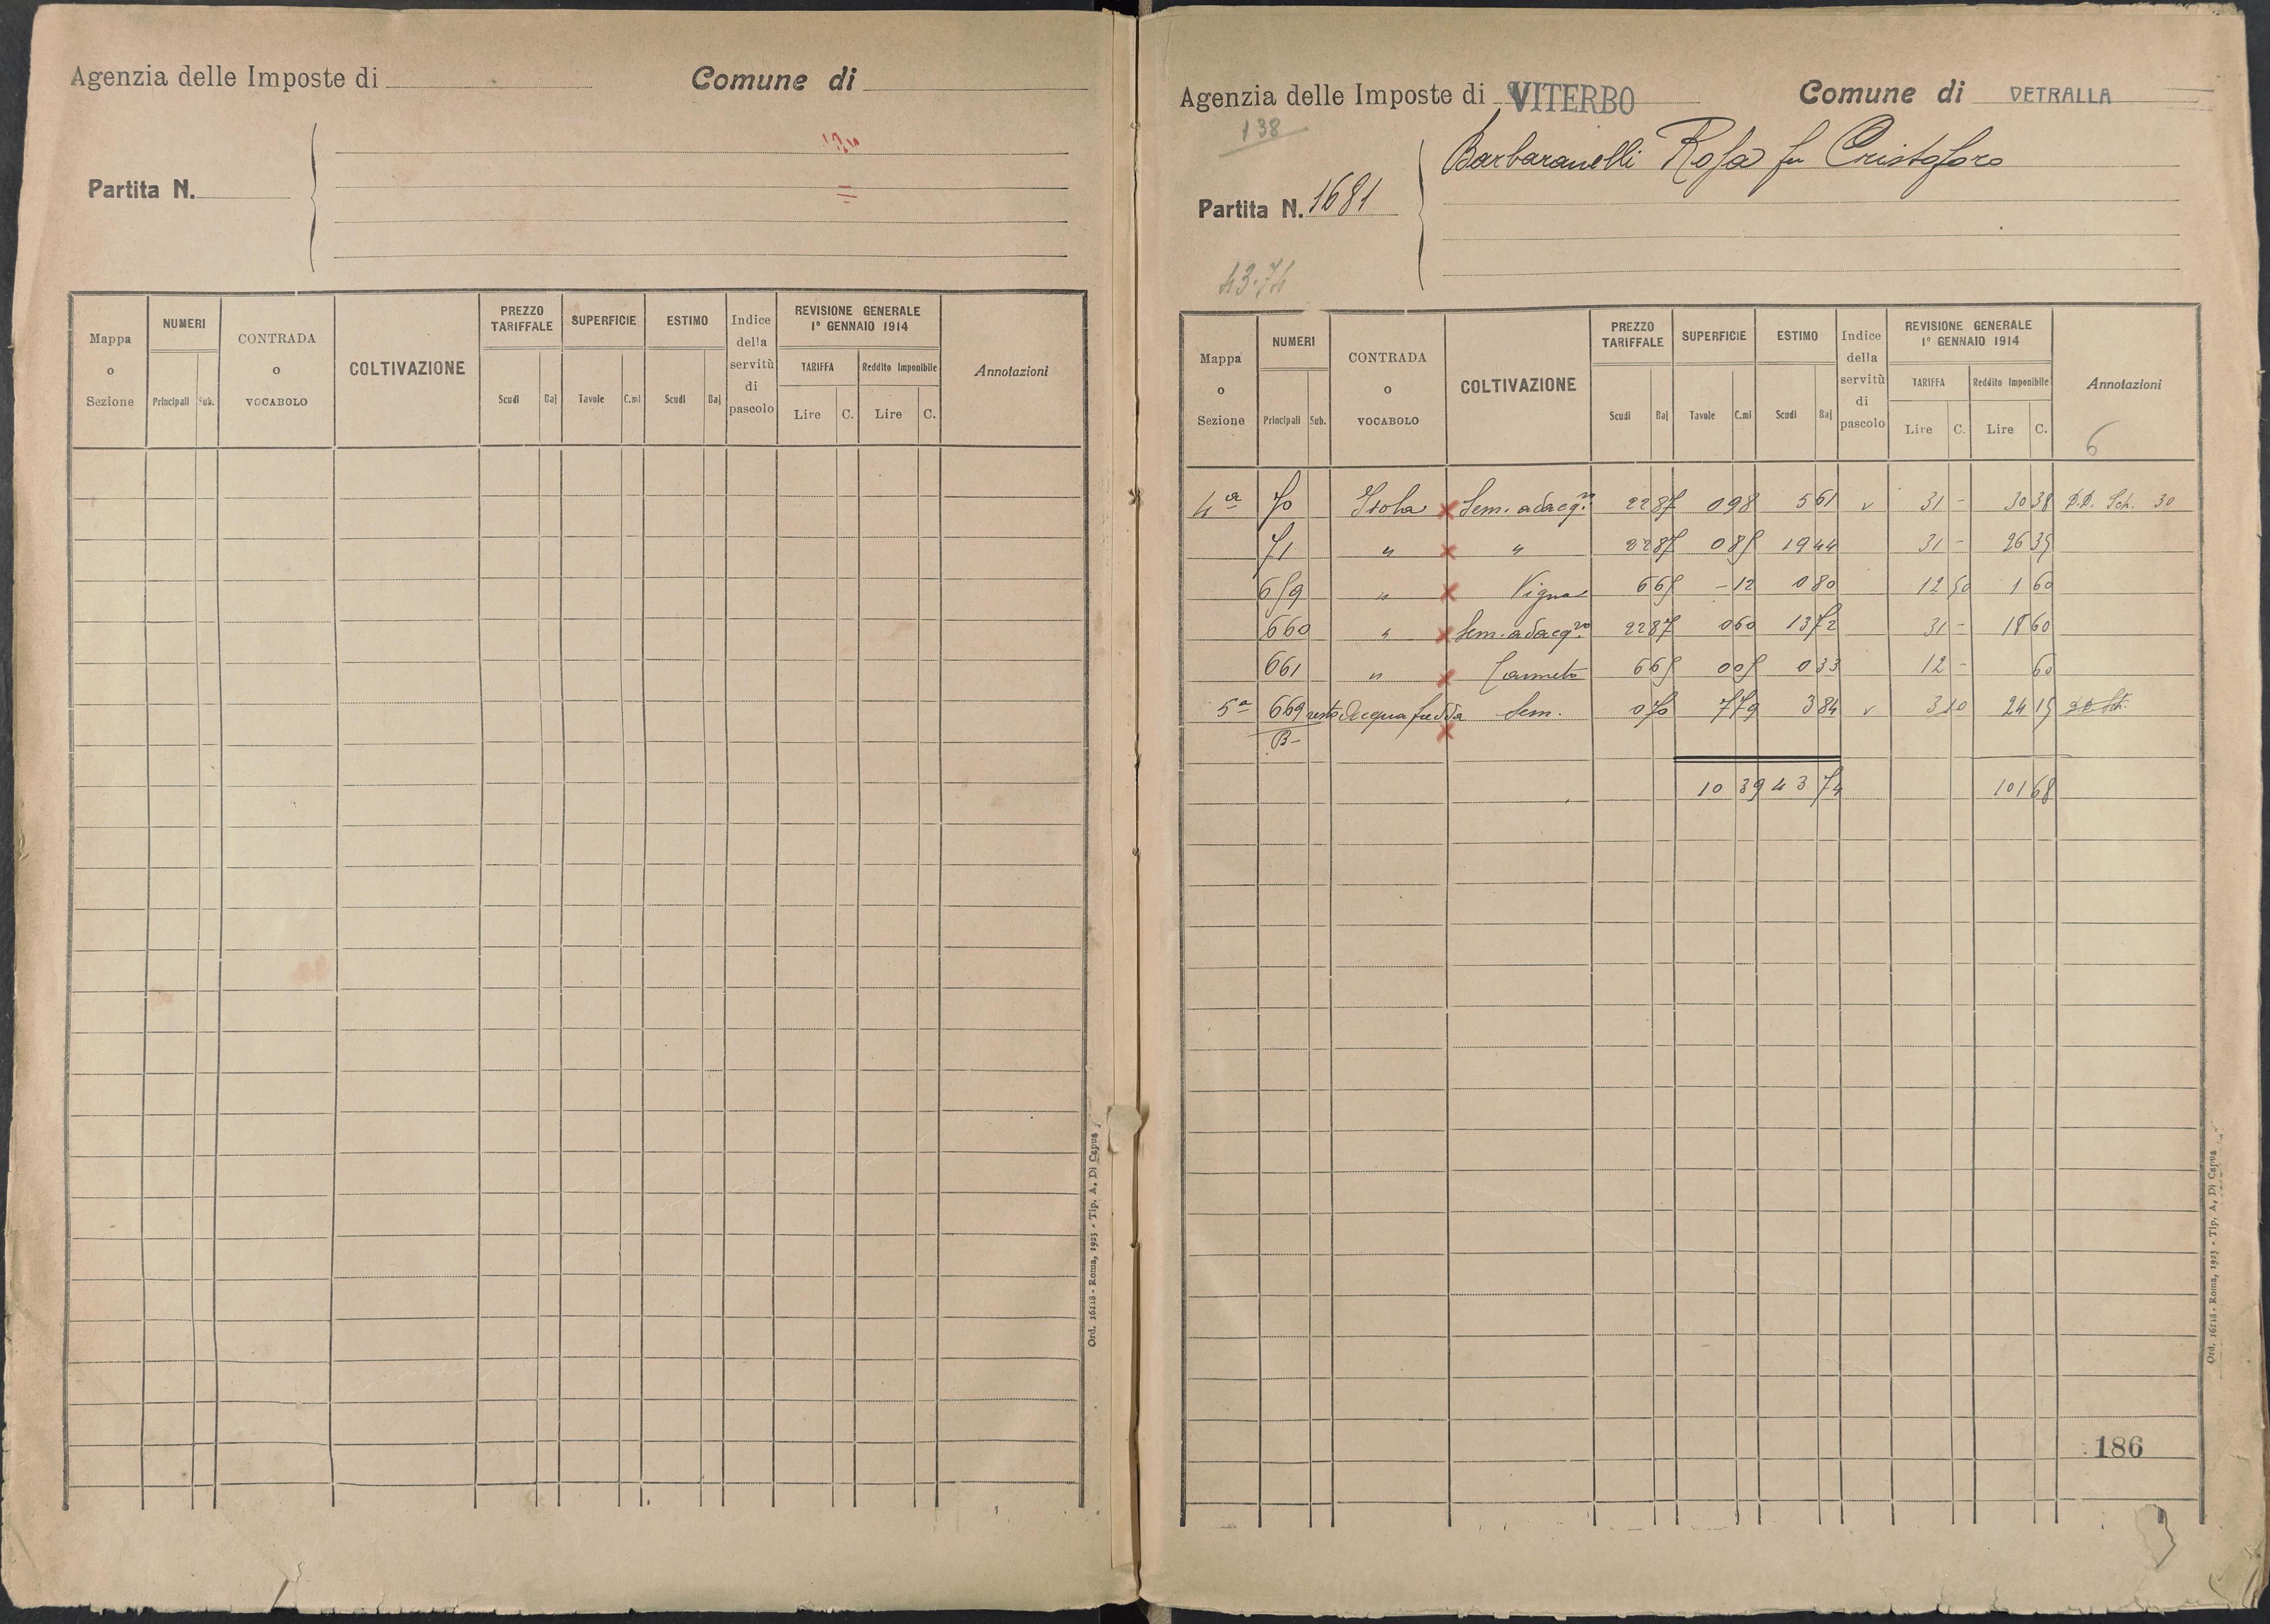 Agenzia delle Imposte di
Comune di
Partita N.
Mappa o Sezione
NUMERI
Principali Sub.
CONTRADA o VOCABOLO
COLTIVAZIONE
PREZZO TARIFFALE
Scudi Baj
SUPERFICIE
Tavole C.mi
ESTIMO
Scudi Baj
Indice della servitù di pascolo
REVISIONE GENERALE 1° GENNAIO 1914
TARIFFA
Lire C.
Reddito Imponibile
Lire C.
Annotazioni
Ord. 16118 - Roma, 1923 - Tip. A. Di Capua
Agenzia delle Imposte di VITERBO
Comune di VETRALLA
138
Barbaranelli Rosa fu Cristoforo
Partita N. 1681
43.74
Mappa o Sezione
NUMERI
Principali Sub.
CONTRADA o VOCABOLO
COLTIVAZIONE
PREZZO TARIFFALE
Scudi Baj
SUPERFICIE
Tavole C.mi
ESTIMO
Scudi Baj
Indice della servitù di pascolo
REVISIONE GENERALE 1° GENNAIO 1914
TARIFFA
Lire C.
Reddito Imponibile
Lire C.
Annotazioni
6
4a 70 x Sem. adacq.vo 22 87 0 98 5 61 v 31 - 30 38 D.D. Sch. 30
71 " x " 22 87 0 85 19 44 31 - 26 35
659 " x Vigna 6 65 - 12 0 80 12 50 1 60
660 " x Sem. adacq.vo 22 87 0 60 13 72 31 - 18 60
661 " x Canneto 6 65 0 05 0 33 12 - 60
5a 669 resto Acqua fredda x Sem. 0 70 7 79 3 84 v 3 10 24 15 D.D. Sch.
B-
10 39 43 74 101 68
186
Ord. 16118 - Roma, 1923 - Tip. A. Di Capua